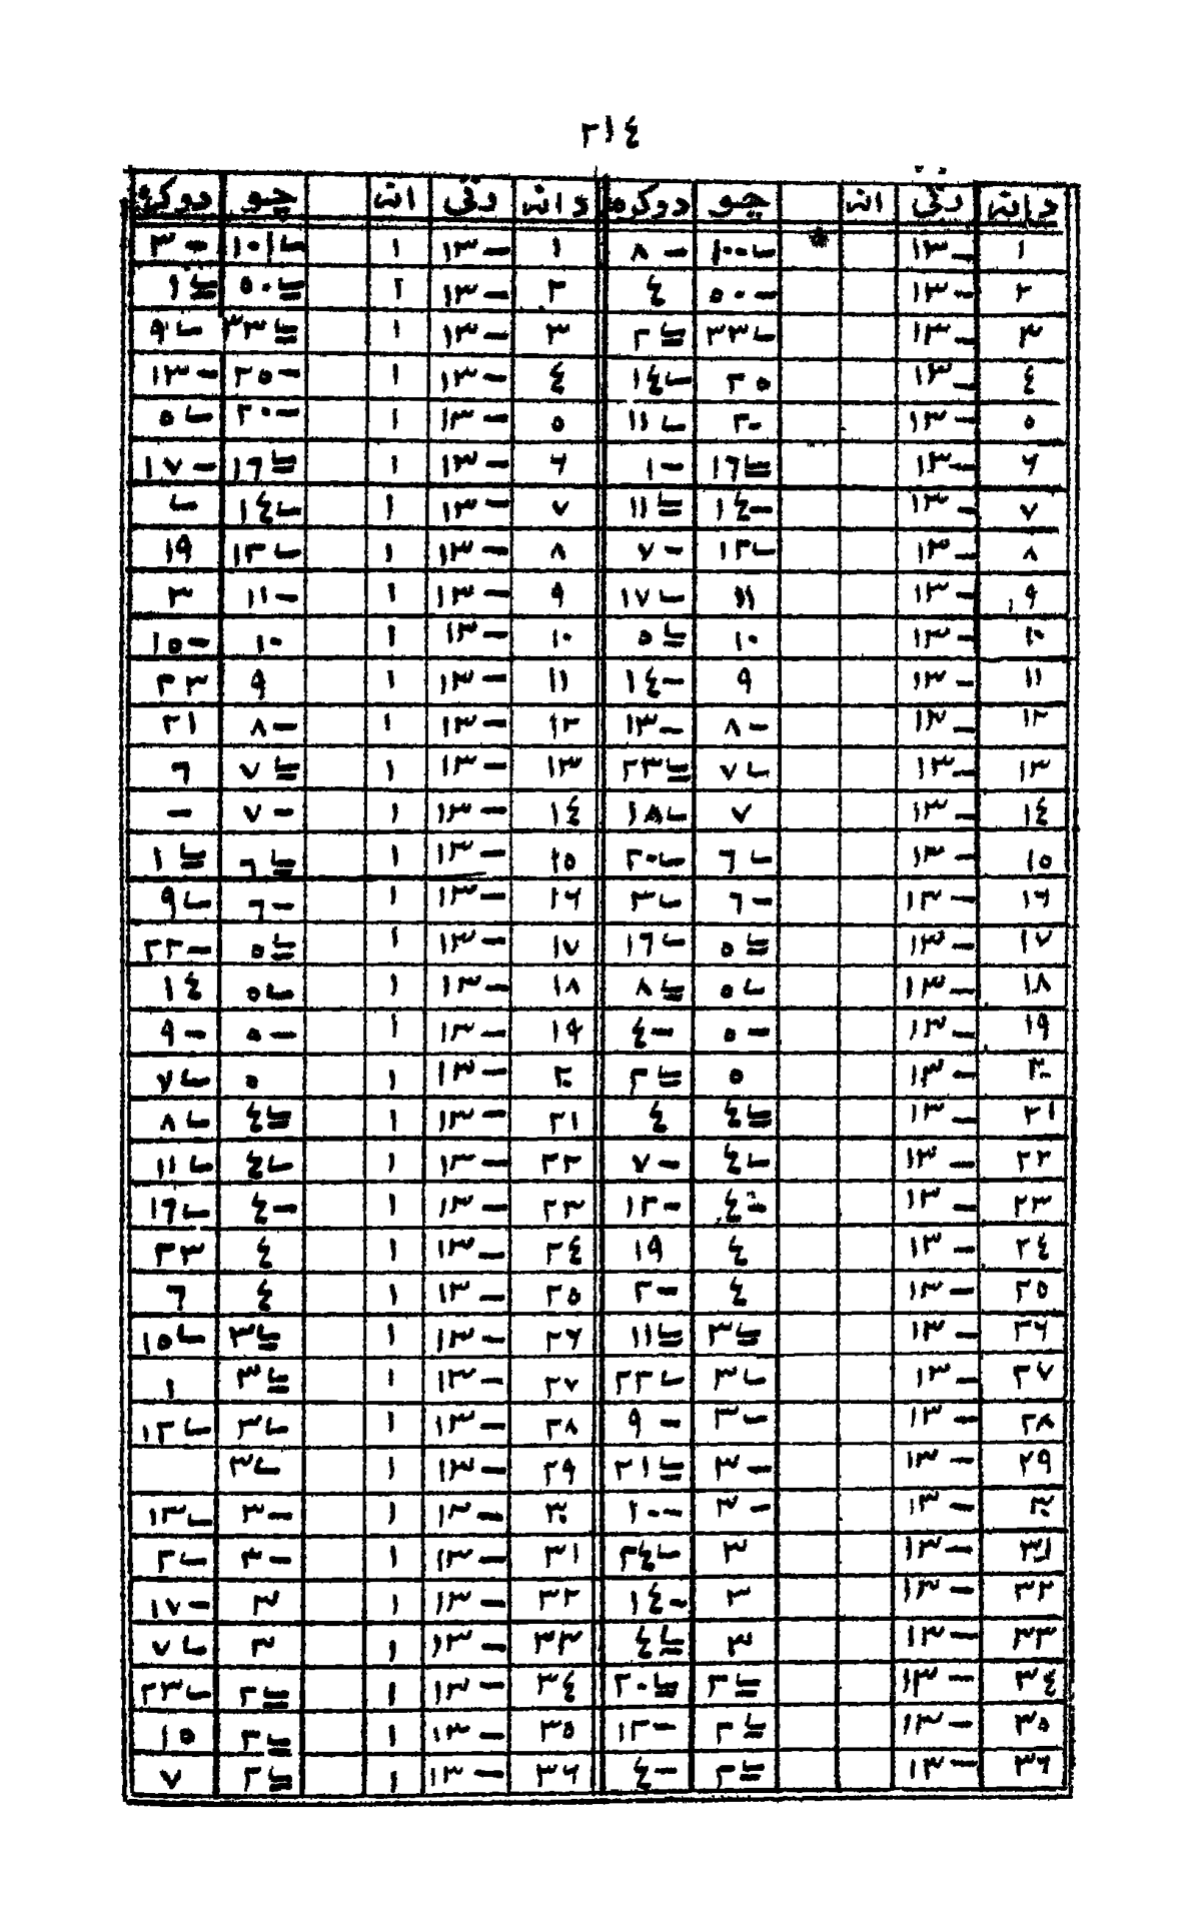 ٢١٤
دانة رتي انه چو دوكره دانه رتي انه چو دوكره
١ -١٣ * ١٠٠ -٨ ١ -١٣ ١ ١٠١ -٣
٢ -١٣ -٥٠ ٤ ٢ -١٣ ١ ٥٠ ١
٣ -١٣ ٣٣ ٢ ٣ -١٣ ١ ٣٣ ٩
٤ -١٣ ٢٥ ١٤ ٤ -١٣ ١ -٢٥ -١٣
٥ -١٣ ٢٠ ١١ ٥ -١٣ ١ -٢٠ ٥
٦ -١٣ ١٦ -١ ٦ -١٣ ١ ١٦ -١٧
٧ -١٣ -١٤ ١١ ٧ -١٣ ١ ١٤
٨ -١٣ ١٢ -٧ ٨ -١٣ ١ ١٢ ١٩
٩ -١٣ ١١ ١٧ ٩ -١٣ ١ -١١ ٣
١٠ -١٣ ١٠ ٥ ١٠ -١٣ ١ ١٠ -١٥
١١ -١٣ ٩ -١٤ ١١ -١٣ ١ ٩ ٢٣
١٢ -١٣ -٨ -١٣ ١٢ -١٣ ١ -٨ ٢١
١٣ -١٣ ٧ ٢٣ ١٣ -١٣ ١ ٧ ٦
١٤ -١٣ ٧ ١٨ ١٤ -١٣ ١ -٧ -
١٥ -١٣ ٦ ٢٠ ١٥ -١٣ ١ ٦ ١
١٦ -١٣ -٦ ٣ ١٦ -١٣ ١ -٦ ٩
١٧ -١٣ ٥ ١٦ ١٧ -١٣ ١ ٥ -٢٢
١٨ -١٣ ٥ ٨ ١٨ -١٣ ١ ٥ ١٤
١٩ -١٣ -٥ -٤ ١٩ -١٣ ١ -٥ -٩
٢٠ -١٣ ٥ ٢ ٢٠ -١٣ ١ ٥ ٧
٢١ -١٣ ٤ ٤ ٢١ -١٣ ١ ٤ ٨
٢٢ -١٣ ٤ -٧ ٢٢ -١٣ ١ ٤ ١١
٢٣ -١٣ -٤ -١٢ ٢٣ -١٣ ١ -٤ ١٦
٢٤ -١٣ ٤ ١٩ ٢٤ -١٣ ١ ٤ ٢٣
٢٥ -١٣ ٤ -٢ ٢٥ -١٣ ١ ٤ ٦
٢٦ -١٣ ٣ ١١ ٢٦ -١٣ ١ ٣ ١٥
٢٧ -١٣ ٣ ٢٢ ٢٧ -١٣ ١ ٣ ١
٢٨ -١٣ ٣ -٩ ٢٨ -١٣ ١ ٣ ١٢
٢٩ -١٣ -٣ ٢١ ٢٩ -١٣ ١ ٣
٣٠ -١٣ -٣ -١٠ ٣٠ -١٣ ١ -٣ ١٣
٣١ -١٣ ٣ ٢٤ ٣١ -١٣ ١ -٣ ٢
٣٢ -١٣ ٣ -١٤ ٣٢ -١٣ ١ ٣ -١٧
٣٣ -١٣ ٣ ٤ ٣٣ -١٣ ١ ٣ ٧
٣٤ -١٣ ٢ ٢٠ ٣٤ -١٣ ١ ٢ ٢٣
٣٥ -١٣ ٢ -١٢ ٣٥ -١٣ ١ ٢ ١٥
٣٦ -١٣ ٢ -٤ ٣٦ -١٣ ١ ٢ ٧